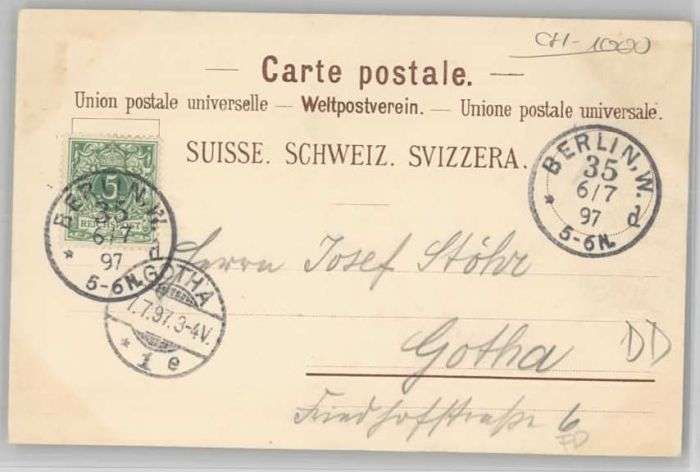 CH-1000
— Carte postale. —
Union postale universelle — Weltpostverein. — Unione postale universale.
SUISSE. SCHWEIZ. SVIZZERA.
5
BERLIN, W.
35
6/7
97
5-6N.
* d
BERLIN, W.
35
6/7
97
5-6N.
* d
GOTHA
7.7.97.3-4V.
* 1 e
Herrn Josef Stöhr
Gotha
DD
Friedhofstraße 6